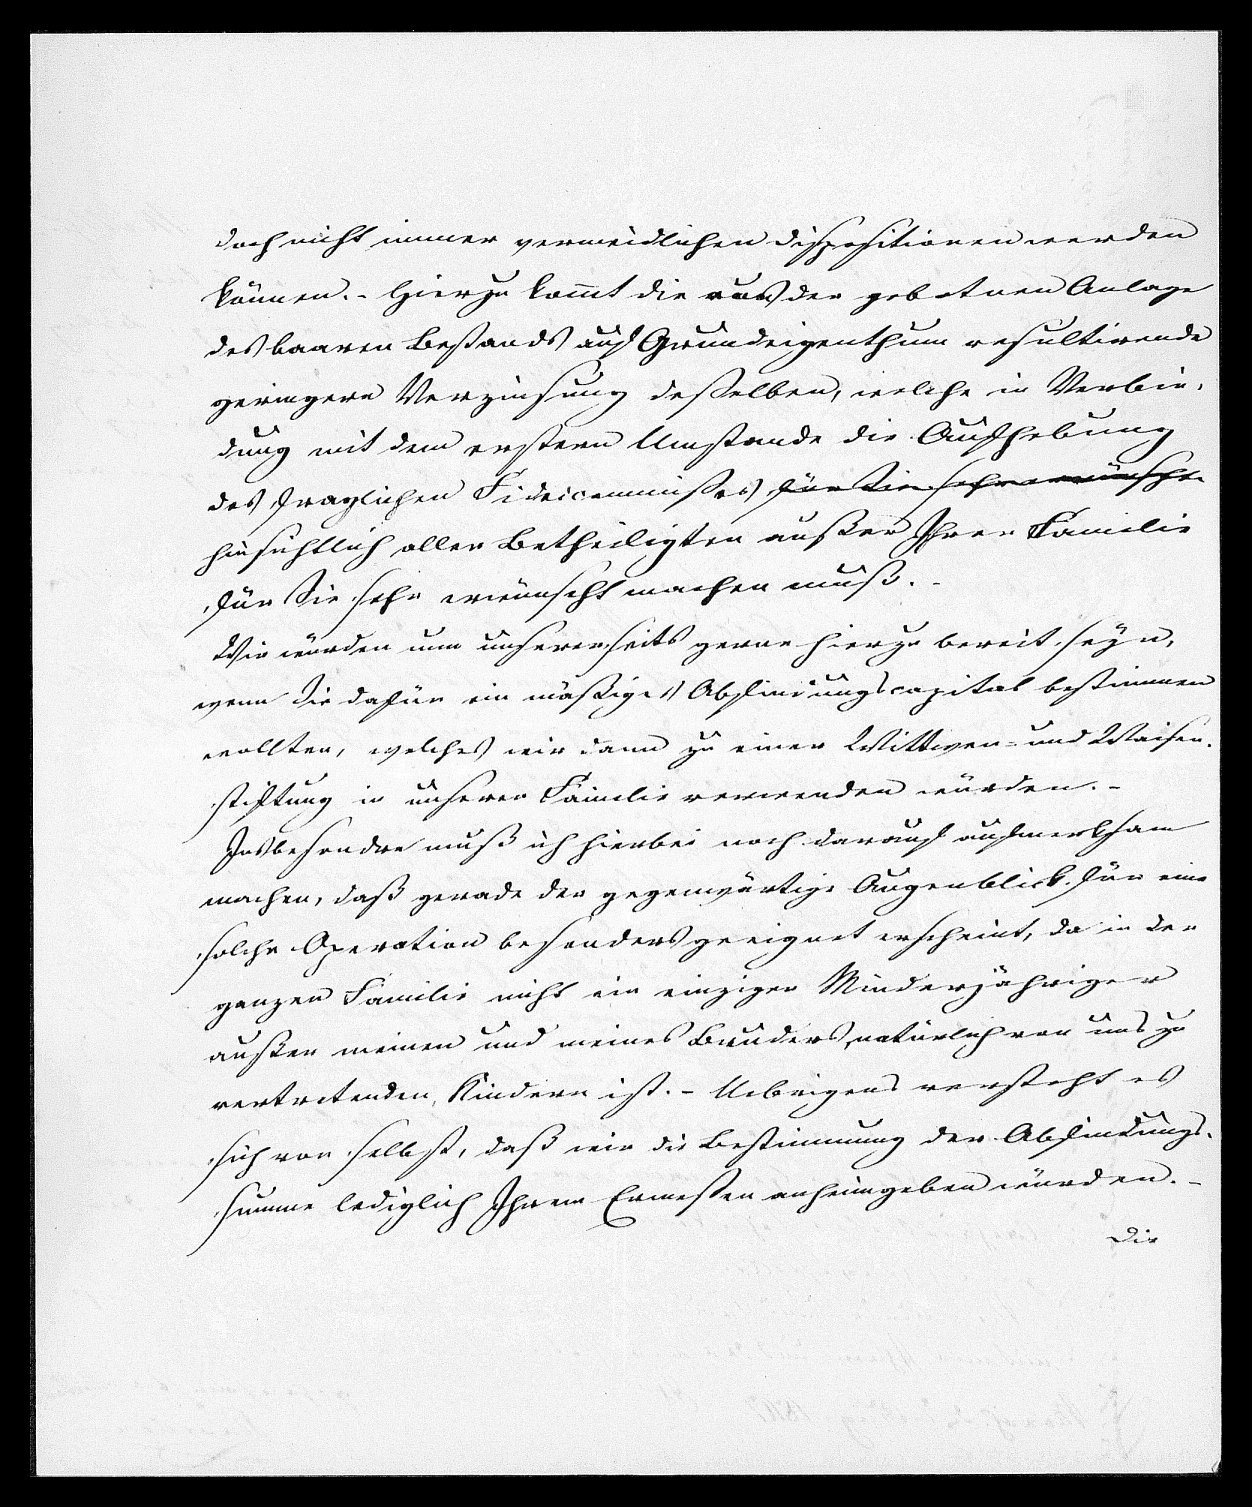 doch nicht immer vermeidlichen Dispositionen werden
können. - Hierzu kommt die aus der gebotnen Anlage
des baaren Bestands auf Grundeigenthum resultirende
geringere Verzinsung desselben, welche in Verbin-
dung mit dem erstern Umstande die Aufhebung
des fraglichen Fideicommisses für Sie sehr erwünscht
hinsichtlich aller Betheiligten außer Ihrer Familie
für Sie sehr erwünscht machen muß. -
Wir würden nun unsererseits gerne hierzu bereit seyn,
wenn Sie dafür ein mäßiges Abfindungscapital bestimmen
wollten, welches wir dann zu einer Wittwen- und Waisen-
stiftung in unserer Familie verwenden würden. -
Insbesondre muß ich hierbei noch darauf aufmerksam
machen, daß gerade der gegenwärtige Augenblick für eine
solche Operation besonders geeignet erscheint, da in der
ganzen Familie nicht ein einziger Minderjähriger
außer meinen und meines Bruders, natürlich von uns zu
vertretenden, Kindern ist. - Uebrigens versteht es
sich von selbst, daß wir die Bestimmung der Abfindungs-
summe lediglich Ihrem Ermessen anheimgeben würden. -
Die